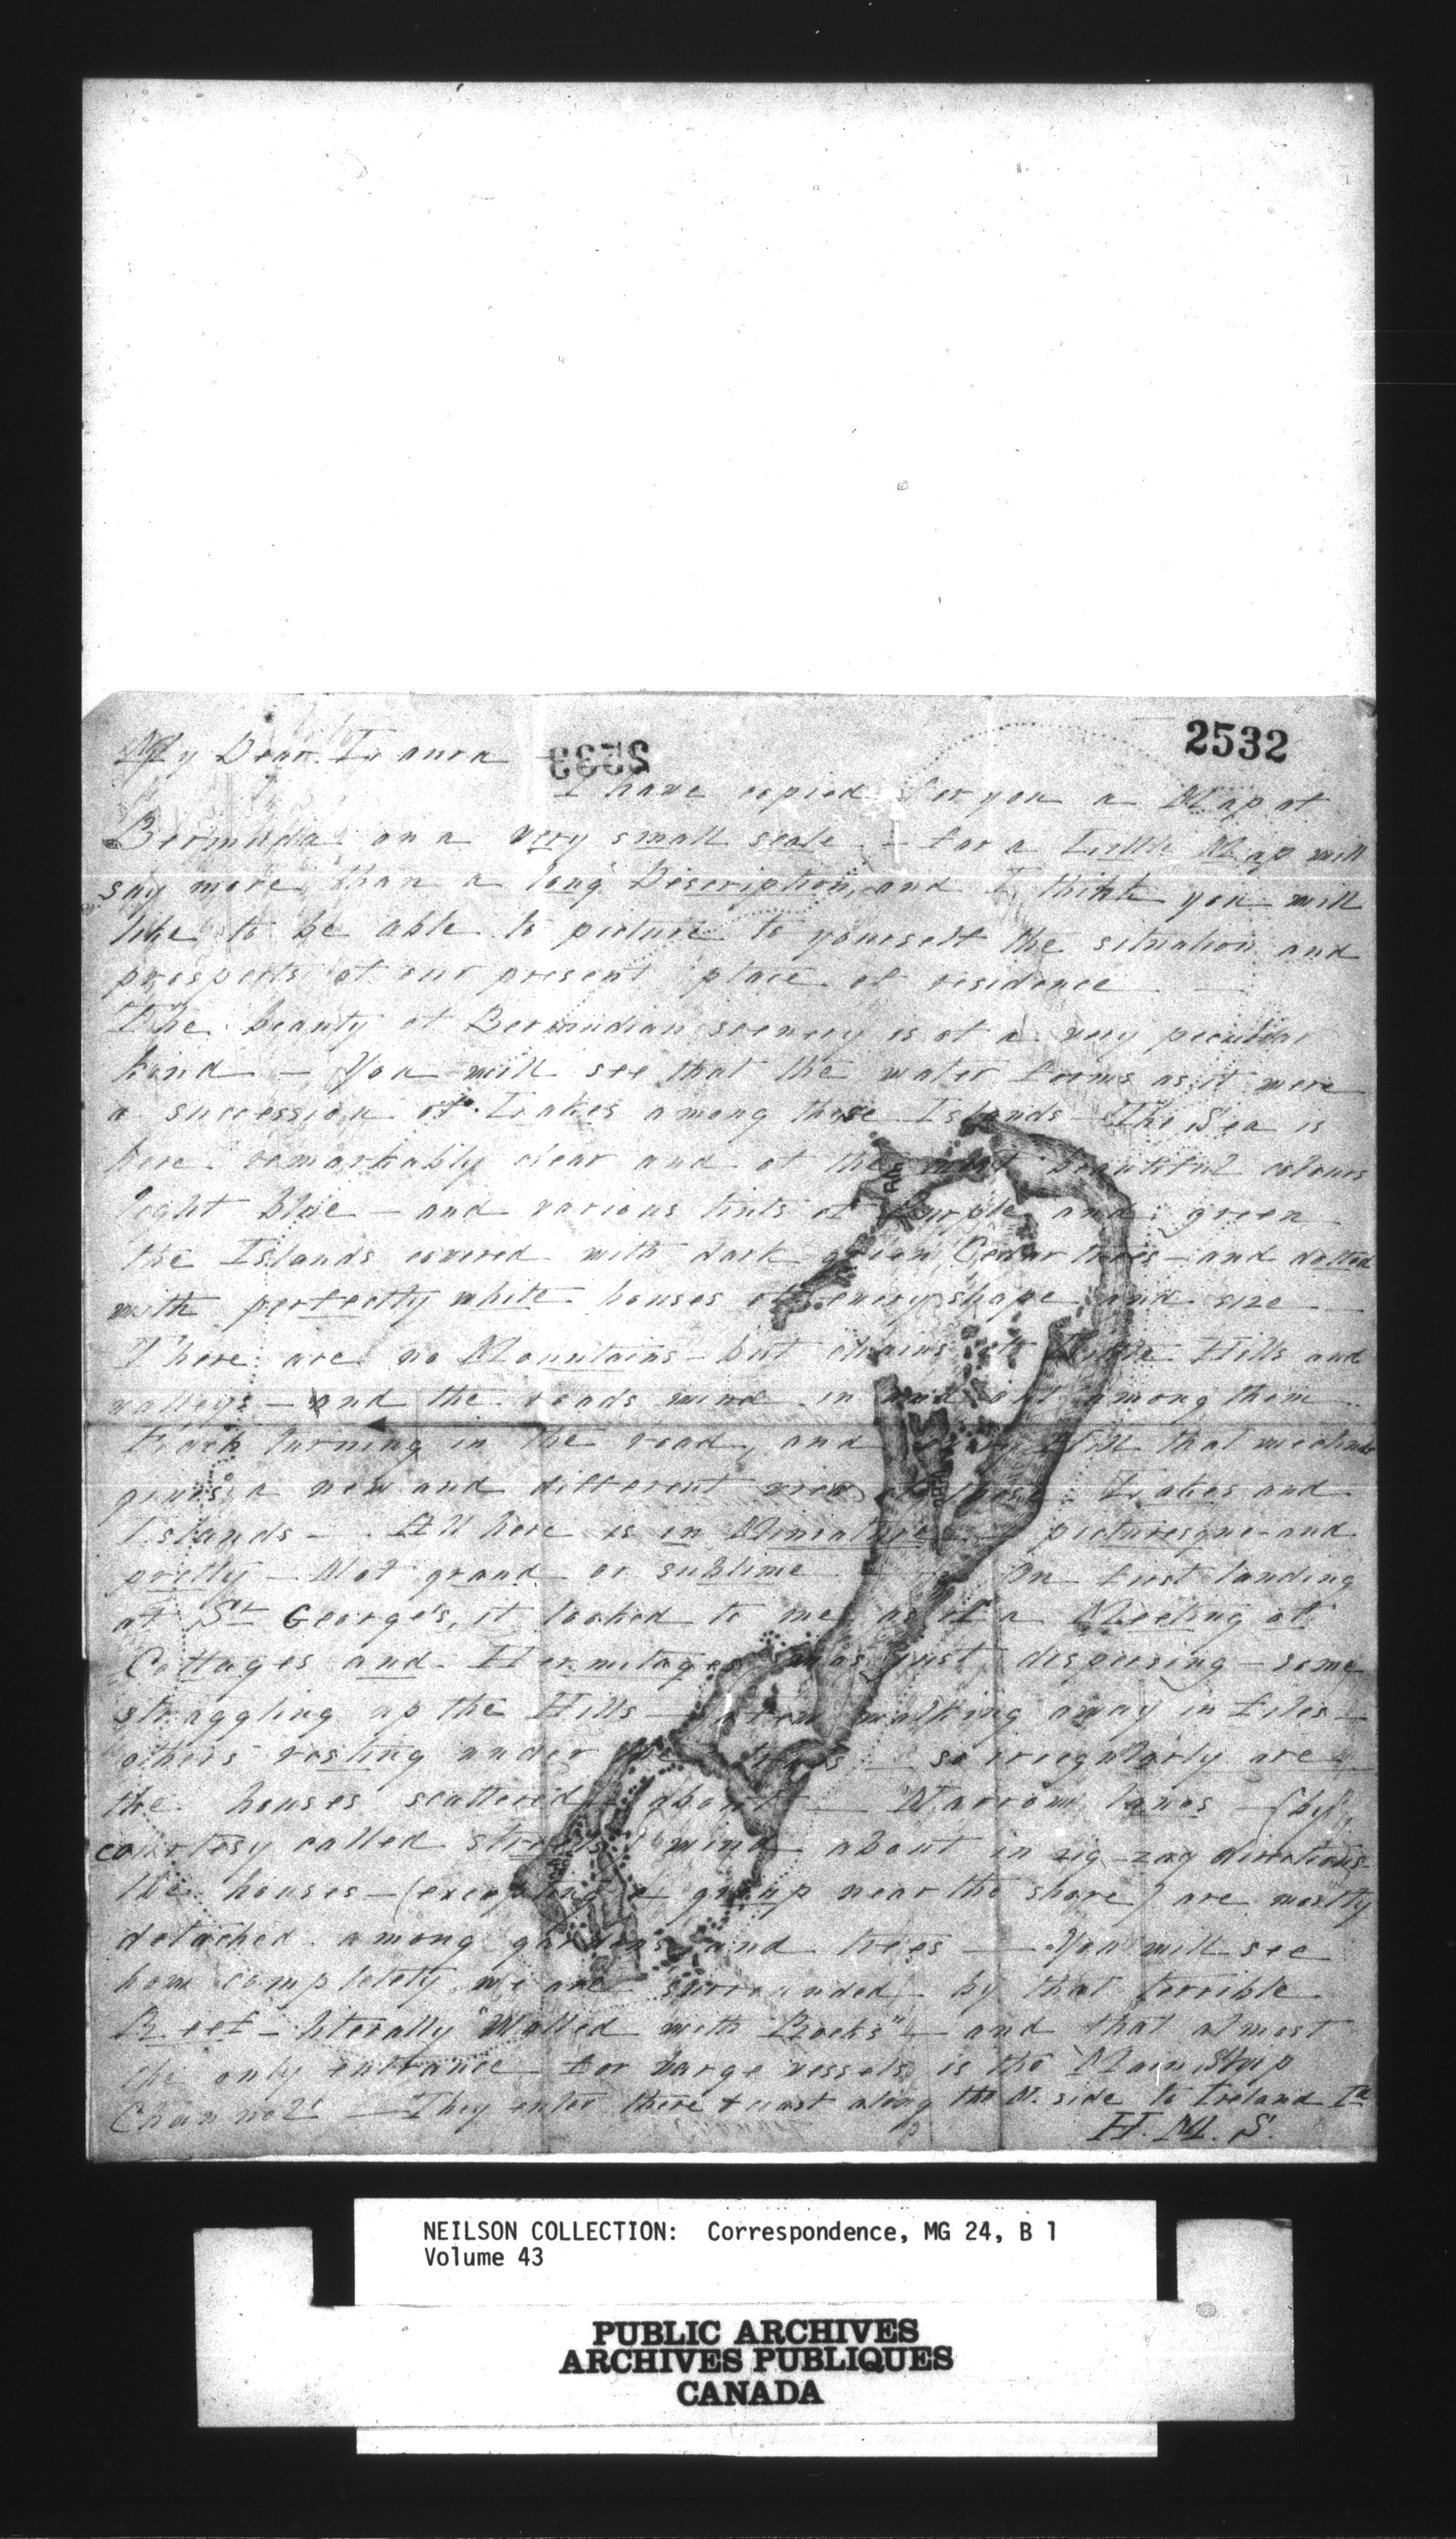 2532
My Dear Laura
2533
I have copied for you a Map of
Bermuda on a very small scale - for a Little Map will
say more than a long Description, and I think you will
like to be able to picture to yourself the situation and
prospects of our present place of residence —
The beauty of Bermudian scenery is of a very peculiar
kind — You will see that the water forms as it were
a succession of Lakes among these Islands — The Sea is
here remarkably clear and of the most beautiful colours
light blue — and various tints of Purple and green
the Islands covered with dark green Cedar trees — and dotted
with perfectly white houses of every shape and size —
There are no Mountains — but chains of little Hills and
valleys — and the roads wind in and out among them
Each turning in the road, and every Hill that
gives a new and different view of these Lakes and
Islands — All here is in Miniature — picturesque and
pretty — Not grand or sublime — On first landing
at St George's, it looked to me as if a Meeting of
Cottages and Hermitages was just dispersing — some
straggling up the Hills — walking away in files —
others resting under the trees — so irregularly are
the houses scattered about — Narrow lanes — (by
courtesy called streets) wind about in zig-zag directions
the houses — (excepting a group near the shore) are mostly
detached among gardens and trees — You will see
how completely we are surrounded by that terrible
Reef — literally "Walled with Rocks" — and that almost
the only entrance for large vessels is the Main Ship
Channel — They enter there & coast along the N. side to Ireland Id
H. M. S.
NEILSON COLLECTION: Correspondence, MG 24, B 1
Volume 43
PUBLIC ARCHIVES
ARCHIVES PUBLIQUES
CANADA